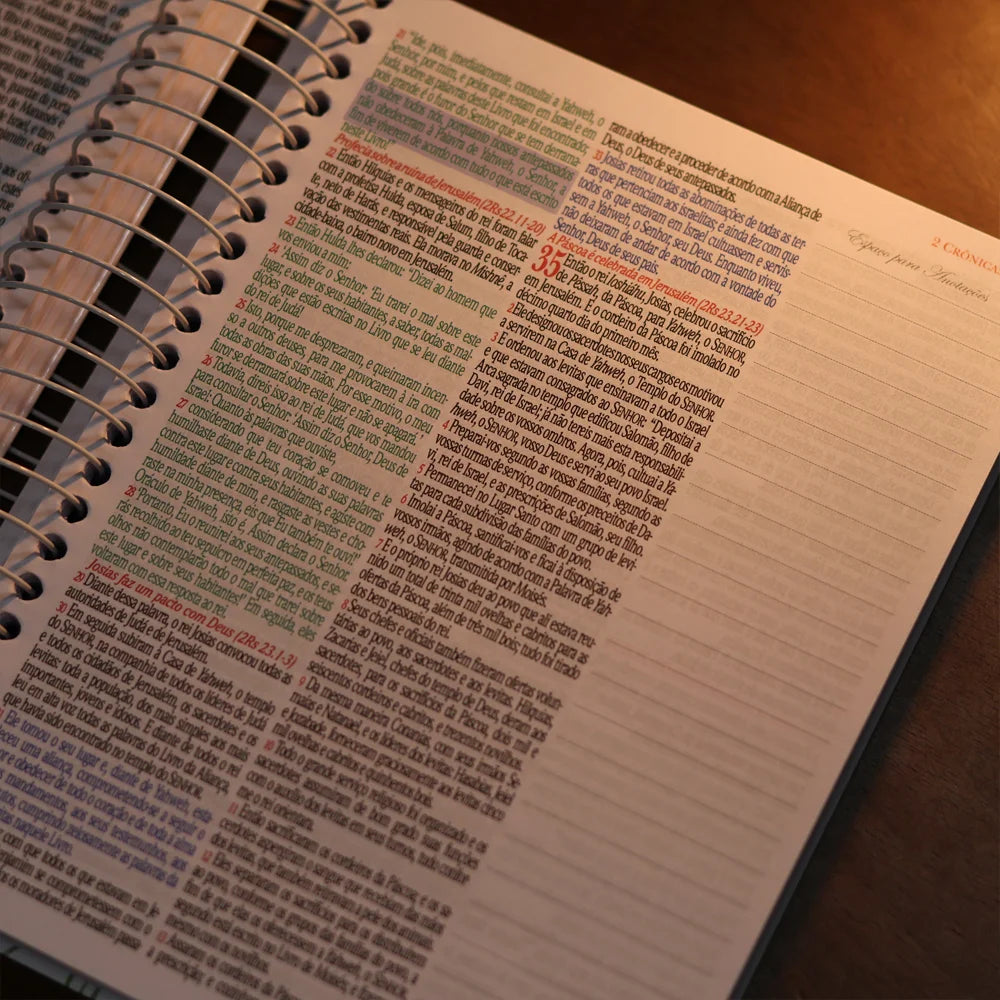 2 CRÔNICA
Espaço para Anotações
21 "Ide, pois, imediatamente, consultai a Yahweh, o
Senhor, por mim, e pelos que restam em Israel e em
Judá, sobre as palavras deste Livro que foi encontrado;
pois grande é o furor do Senhor que se tem derrama-
do sobre todos nós, porquanto nossos antepassados
não obedeceram à Palavra de Yahweh, o Senhor, a
fim de viverem de acordo com tudo o que está escrito
neste Livro!"
Profecia sobre a ruína de Jerusalém (2Rs 22.11-20)
22 Então Hilquias e os mensageiros do rei foram falar
com a profetisa Hulda, esposa de Salum, filho de Toca-
te, neto de Harás, e responsável pela guarda e conser-
vação das vestimentas reais. Ela morava no Mishné, a
cidade-baixa, o bairro novo em Jerusalém.
23 Então Hulda lhes declarou: "Dizei ao homem que
vos enviou a mim:
24 Assim diz o Senhor: 'Eu trarei o mal sobre este
lugar, e sobre os seus habitantes, a saber, todas as mal-
dições que estão escritas no Livro que se leu diante
do rei de Judá!
25 Isto, porque me desprezaram, e queimaram incen-
so a outros deuses, para me provocarem à ira com
todas as obras das suas mãos. Por esse motivo, o meu
furor se derramará sobre este lugar e não se apagará.'
26 Todavia, direis isso ao rei de Judá, que vos mandou
para consultar o Senhor: 'Assim diz o Senhor, Deus de
Israel: Quanto às palavras que ouviste,
27 considerando, que teu coração se comoveu, e te
humilhaste diante de Deus, ouvindo as suas palavras
contra este lugar e contra seus habitantes, e agiste com
humildade diante de mim, e rasgaste as vestes e cho-
raste na minha presença, eis que Eu também te ouvi!
Oráculo de Yahweh, isto é, Assim declara o Senhor.
28 Portanto, Eu o reunirei aos seus antepassados, e se-
rás recolhido ao teu sepulcro em perfeita paz, e os teus
olhos não contemplarão todo o mal que trarei sobre
este lugar e sobre seus habitantes!'" Em seguida, eles
voltaram com essa resposta ao rei.
Josias faz um pacto com Deus (2Rs 23.1-3)
29 Diante dessa palavra, o rei Josias convocou todas as
autoridades de Judá e de Jerusalém.
30 Em seguida subiram à Casa de Yahweh, o templo
do SENHOR, na companhia de todos os líderes de Judá
e todos os cidadãos de Jerusalém, os sacerdotes e os
levitas: toda a população, dos mais simples aos mais
importantes, jovens e idosos. E diante de todos o rei
leu em alta voz todas as palavras do Livro da Aliança,
que havia sido encontrado no templo do SENHOR.
Ele tomou o seu lugar e, diante de Yahweh, esta
eceu uma aliança, comprometendo-se a seguir o
or e obedecer de todo o coração e de toda a alma
mandamentos, aos seus testemunhos, aos
cumprindo zelosamente as palavras da
naquele Livro.
com que todos os que estavam em Je
njamim se comprometessem com o
os moradores de Jerusalém, passa
ram a obedecer e a proceder de acordo com a Aliança de
Deus, o Deus de seus antepassados.
33 Josias retirou todas as abominações de todas as ter-
ras que pertenciam aos israelitas; e ainda fez com que
todos os que estavam em Israel cultuassem e servis-
sem a Yahweh, o SENHOR, seu Deus. Enquanto viveu,
não deixaram de andar de acordo com a vontade do
Senhor, Deus de seus pais.
A Páscoa é celebrada em Jerusalém (2Rs 23.21-23)
35 Então o rei Ioshiáhu, Josias, celebrou o sacrifício
de Pêssah, da Páscoa, para Yahweh, o SENHOR,
em Jerusalém. E o cordeiro da Páscoa foi imolado no
décimo quarto dia do primeiro mês.
2 Ele designou os sacerdotes nos seus cargos e os motivou
a servirem na Casa de Yahweh, o Templo do SENHOR.
3 E ordenou aos levitas que ensinavam a todo o Israel
e que estavam consagrados ao SENHOR: "Depositai a
Arca sagrada no templo que edificou Salomão, filho de
Davi, rei de Israel; já não tereis mais esta responsabili-
dade sobre os vossos ombros. Agora, pois, cultuai a Ya-
hweh, o SENHOR, vosso Deus e servi ao seu povo Israel.
4 Preparai-vos segundo as vossas famílias, segundo as
vossas turmas de serviço, conforme os preceitos de Da-
vi, rei de Israel, e as prescrições de Salomão, seu filho.
5 Permanecei no Lugar Santo com um grupo de levi-
tas para cada subdivisão das famílias do povo.
6 Imolai a Páscoa, santificai-vos e ficai à disposição de
vossos irmãos, agindo de acordo com a Palavra de Yah-
weh, o SENHOR, transmitida por Moisés.
7 E o próprio rei Josias deu ao povo que ali estava reu-
nido um total de trinta mil ovelhas e cabritos para as
ofertas da Páscoa, além de três mil bois; tudo foi tirado
dos bens pessoais do rei.
8 Seus chefes e oficiais também fizeram ofertas volun-
tárias ao povo, aos sacerdotes e aos levitas. Hilquias,
Zacarias e Jeiel, chefes do templo de Deus, deram aos
sacerdotes, para os sacrifícios da Páscoa, dois mil e
seiscentos cordeiros e cabritos, e trezentos novilhos.
9 Da mesma maneira Conanias, com seus irmãos Se-
maías e Natanael, e os líderes dos levitas: Hasabias, Jeiel
e Jozabade, forneceram graciosamente aos levitas cinco
mil ovelhas e cabritos e quinhentos bois.
10 Todo o grande serviço religioso foi organizado e os
sacerdotes assumiram de bom grado suas funções
com o auxílio dos levitas em seus turnos, tudo confor-
me o rei orientara.
11 Então sacrificaram os cordeiros da Páscoa, e os sa-
cerdotes aspergiram o sangue que receberam das mãos
dos levitas, que também retiravam a pele dos animais.
12 Eles separaram os sacrifícios para os distribuírem
ao povo, conforme os grupos das famílias do povo, a
fim de que elas os oferecessem a Yahweh, o SENHOR,
segundo está escrito no Livro de Moisés; e fizeram o
mesmo com os novilhos.
13 Assaram os cordeiros da Páscoa
a prescrição, e